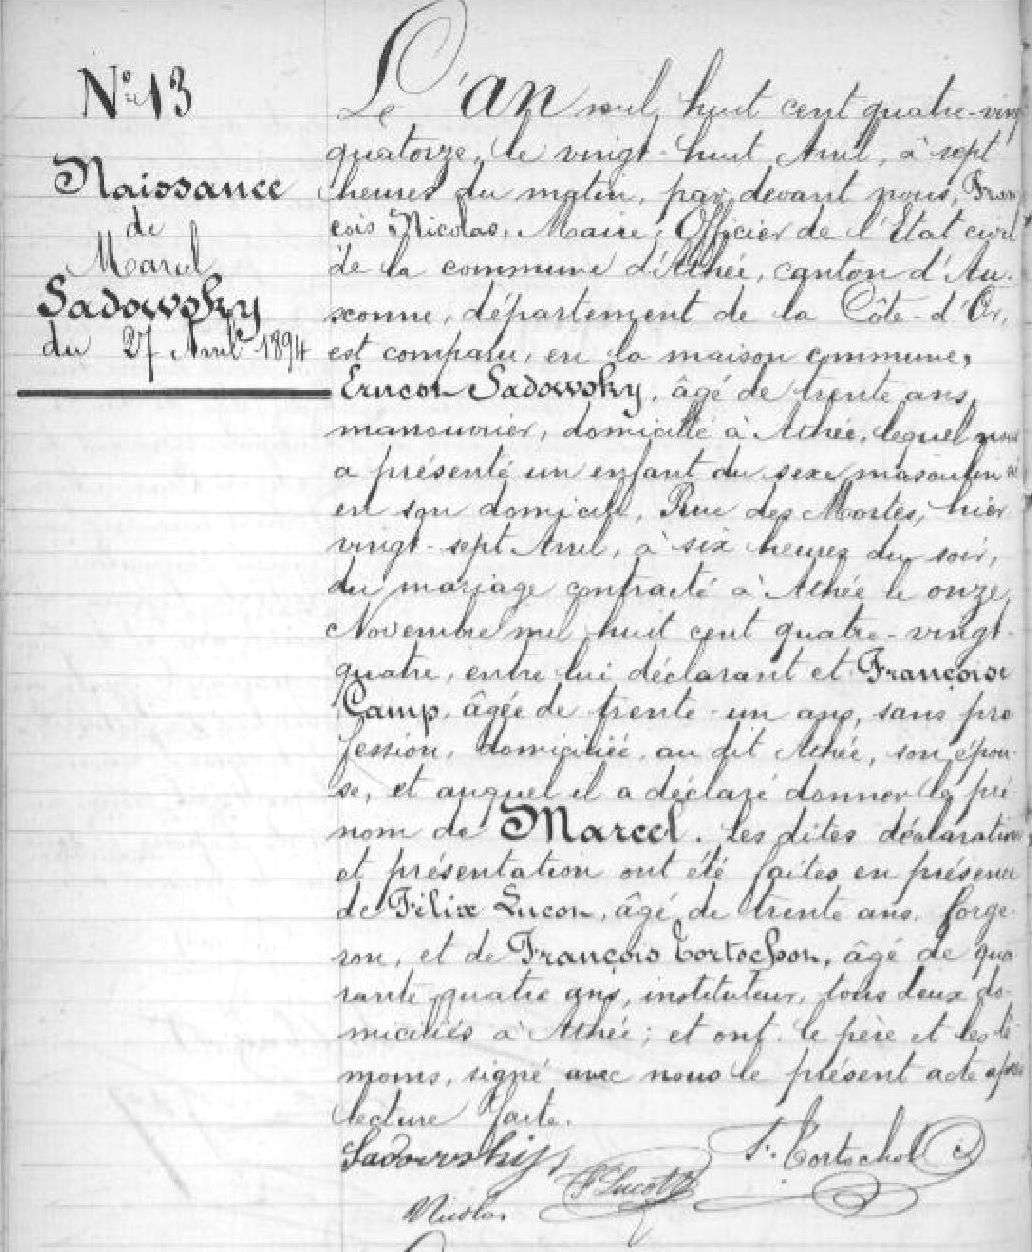 N° 13
Naissance
de
Marcel
Sadowsky
du 27 Avril 1894
L'an mil huit cent quatre-vingt
quatorze, le vingt-huit Avril, à sept
heures du matin, par devant nous, Fran
çois Nicolas, Maire, Officier de l'Etat civil
de la commune d'Athée, canton d'Au-
xonne, département de la Côte-d'Or,
est comparu, en la maison commune,
Sadowsky, âgé de trente ans,
manouvrier, domicilié à Athée, lequel nous
a présenté un enfant du sexe masculin né
en son domicile, Rue des Mortes, hier
vingt-sept Avril, à six heures du soir,
du mariage contracté à Athée le onze
Novembre mil huit cent quatre-vingt-
quatre, entre lui déclarant et Françoise
Camp, âgée de trente-un ans, sans pro
fession, domiciliée au dit Athée, son épou-
se, et auquel il a déclaré donner le pré
nom de Marcel. Les dites déclaration
et présentation ont été faites en présence
de Félix Lucot, âgé de trente ans, forge-
ron, et de François Tortochot, âgé de qua
rante quatre ans, instituteur, tous deux do-
miciliés à Athée; et ont le père et les té
moins, signé avec nous le présent acte après
lecture faite.
Sadowski F. Lucot F. Tortochot
Nicolas